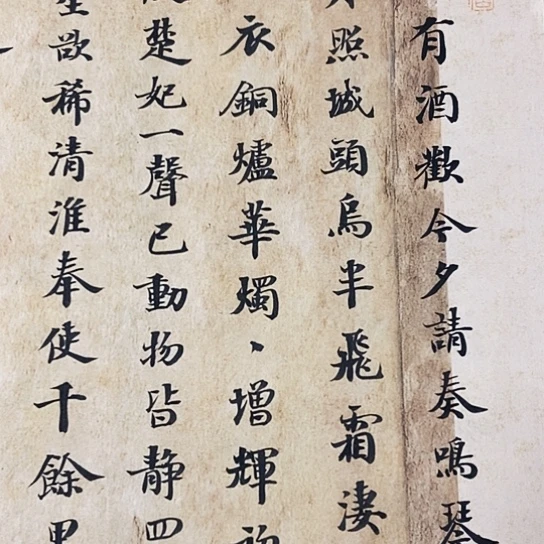 有酒歡今夕請奏鳴琴
照城頭烏半飛霜淒
衣銅爐華燭、增輝初
楚妃一聲已動物皆静四
欲稀清淮奉使千餘里